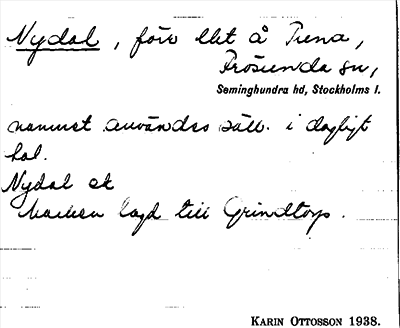 Nydal, förr lht å Tuna,
Frösunda sn,
Seminghundra hd, Stockholms l.
namnet användes säll. i dagligt
tal.
Nydal ek
Marken lagd till Grindtorp.
KARIN OTTOSSON 1938.